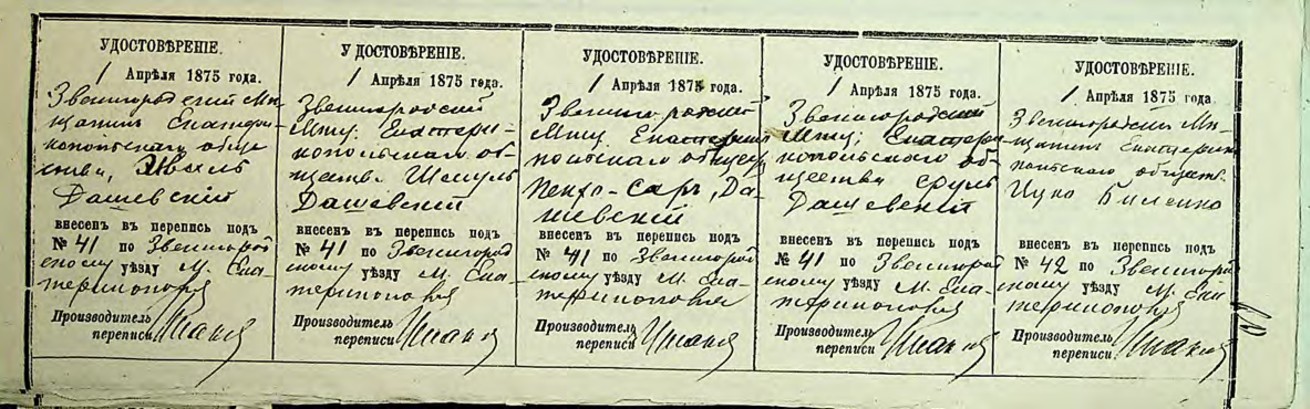 УДОСТОВѢРЕНІЕ.
1 Апрѣля 1875 года.
Звенигородский Мѣ-
щанинъ Екатери-
нопольскаго обще
ства,
Дашевскій
внесенъ въ перепись подъ
№ 41 по Звенигород
скому уѣзду М. Ека-
теринополя
Производитель
переписи
УДОСТОВѢРЕНІЕ.
1 Апрѣля 1875 года.
Звенигородский
Мѣщ. Екатери-
нопольскаго об-
щества Шмуль
Дашевскій
внесенъ въ перепись подъ
№ 41 по Звенигород
скому уѣзду М. Ека-
теринополя
Производитель
переписи
УДОСТОВѢРЕНІЕ.
1 Апрѣля 1875 года.
Звенигородский
Мѣщ. Екатерино
польскаго общес
Сара, Да-
шевскій
внесенъ въ перепись подъ
№ 41 по Звенигород
скому уѣзду М. Ека-
теринополя
Производитель
переписи
УДОСТОВѢРЕНІЕ.
1 Апрѣля 1875 года.
Звенигородский
Мѣщ. Екатери
нопольскаго об-
щества Сруль
Дашевскій
внесенъ въ перепись подъ
№ 41 по Звенигород
скому уѣзду М. Ека-
теринополя
Производитель
переписи
УДОСТОВѢРЕНІЕ.
1 Апрѣля 1875 года
Звенигородский Мѣ-
щанинъ Екатерино
польскаго обществ.
Ицко Биленко
внесенъ въ перепись подъ
№ 42 по Звенигород
скому уѣзду М. Ека
теринополя
Производитель
переписи